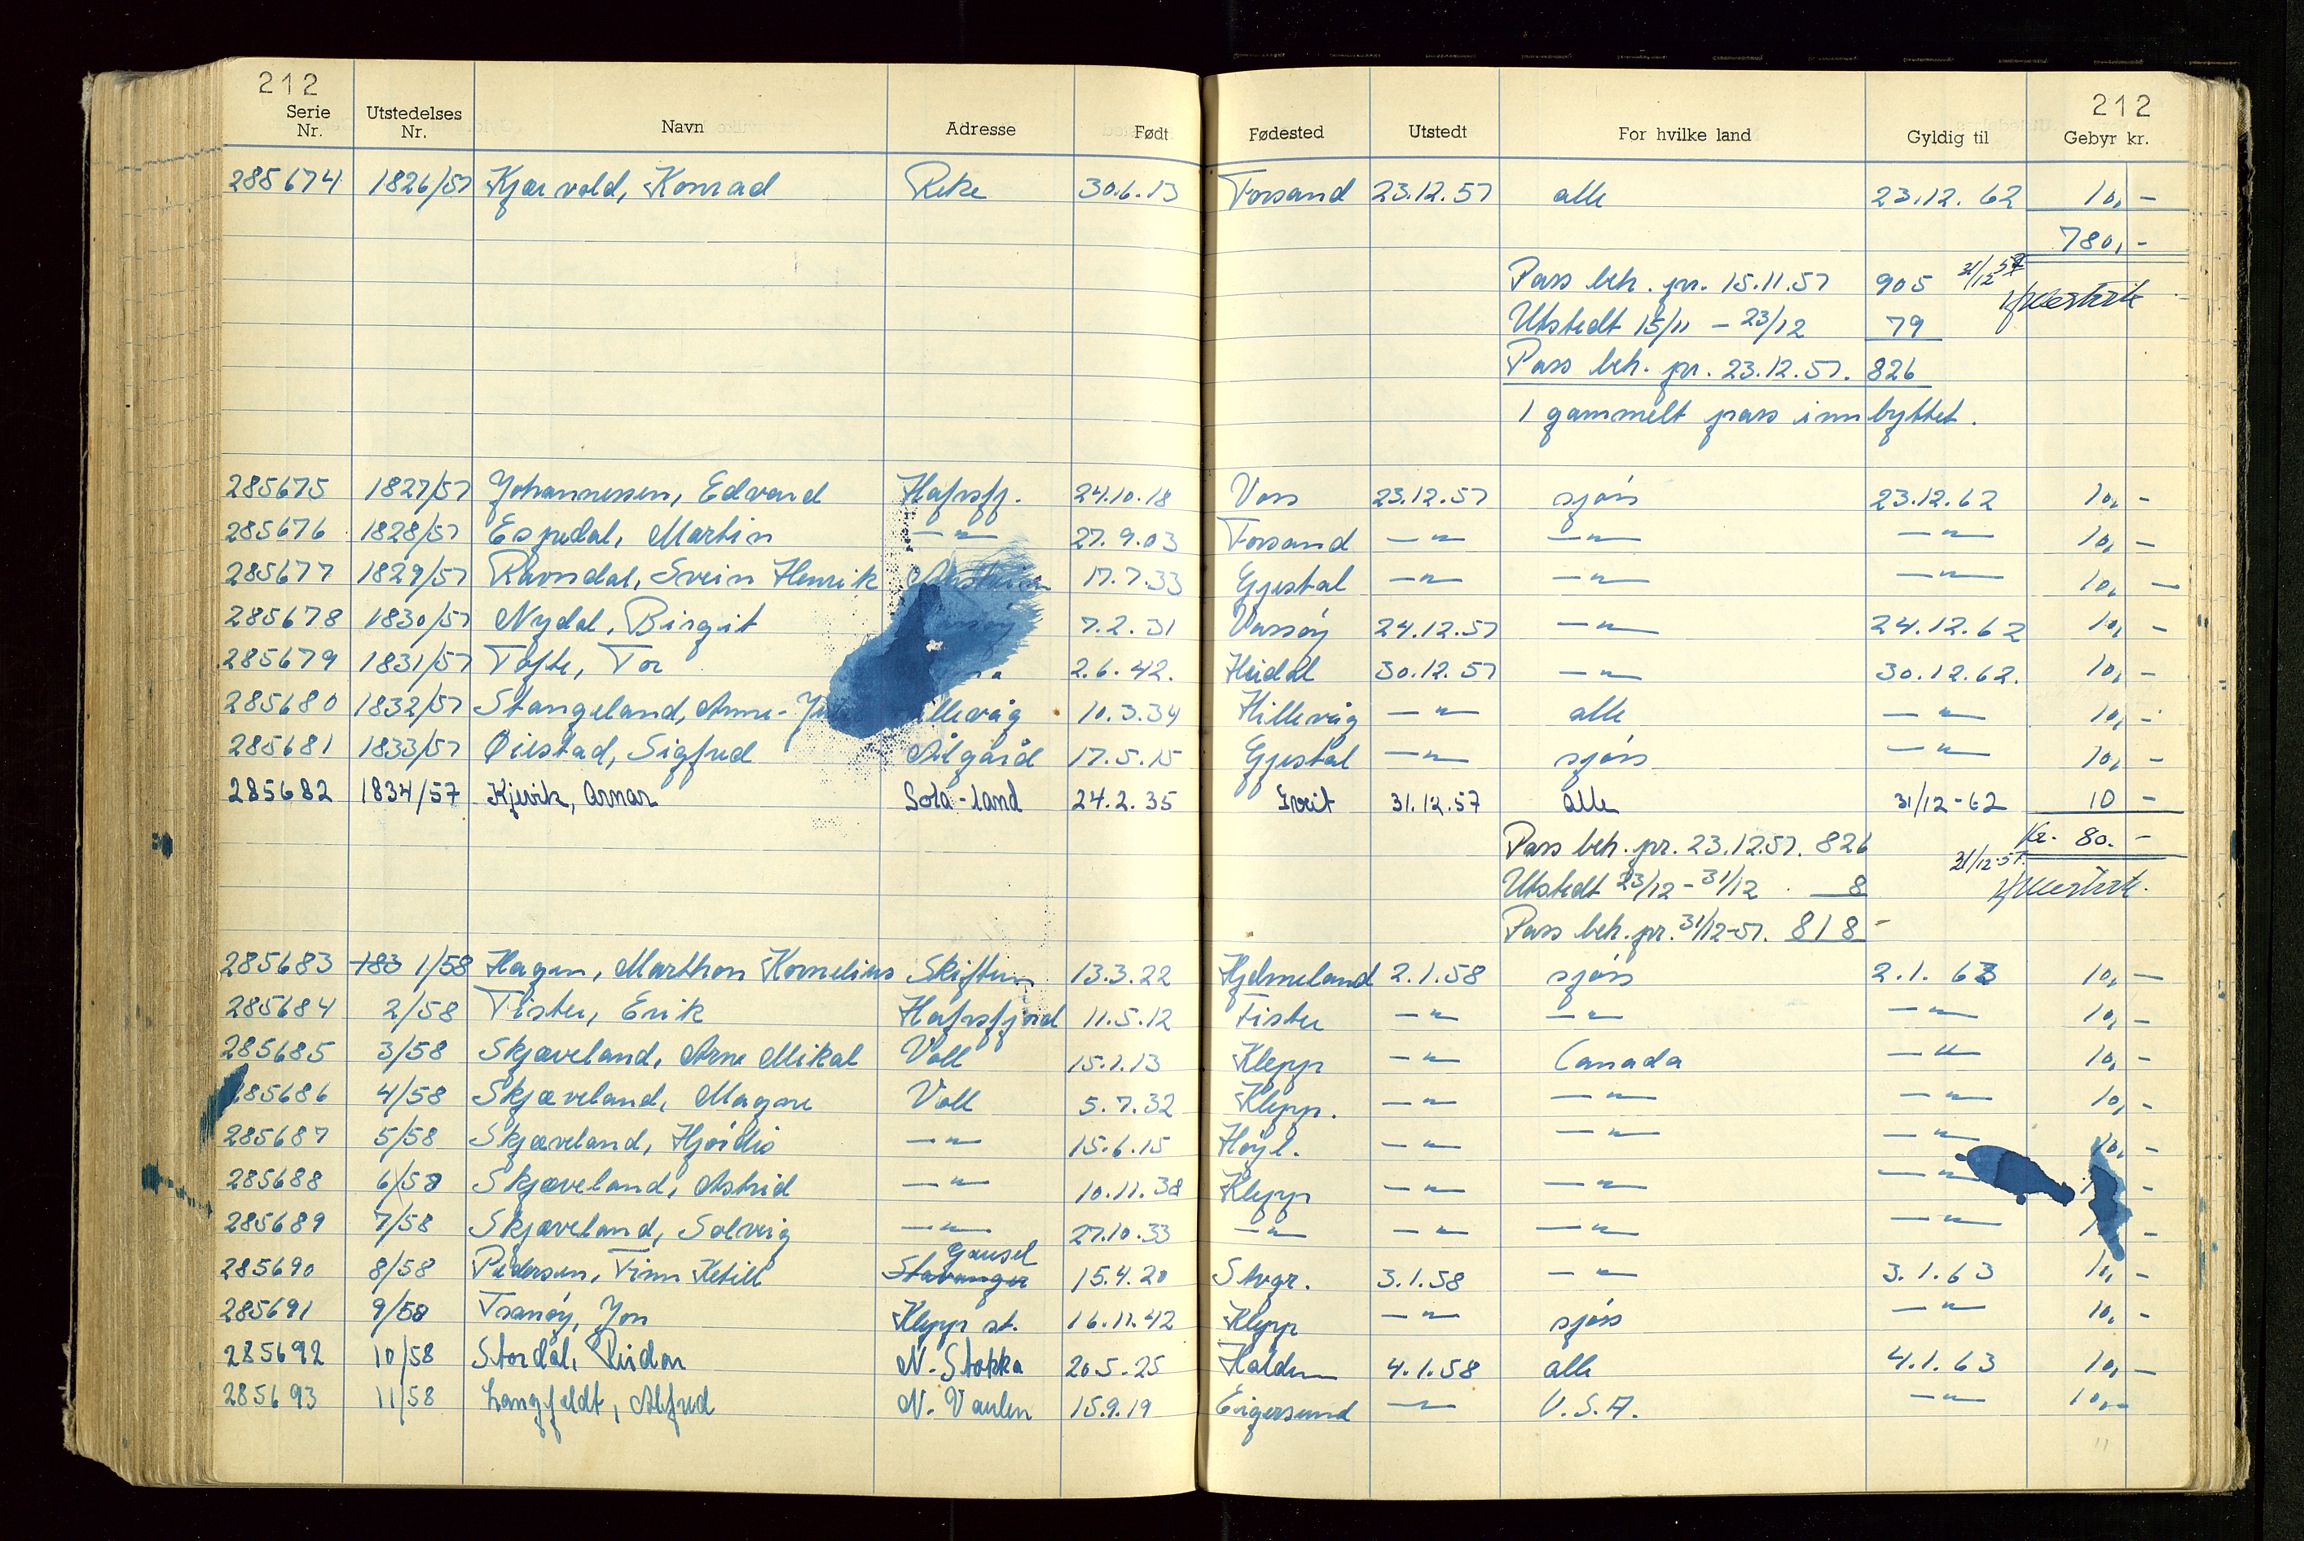 212 212
Serie Nr. Utstedelses Nr. Navn Adresse Født Fødested Utstedt For hvilke land Gyldig til Gebyr kr.
285674 1826/57 Kjærvold, Konrad Reke 30.6.13 Forsand 23.12.57 alle 23.12.62 10,-
780,-
Pass beh. pr. 15.11.57 905 31/12 57
Utstedt 15/11 - 23/12 79
Pass beh. pr. 23.12.57. 826
1 gammelt pass innbyttet.
285675 1827/57 Johannessen, Edvard Hafrsfj. 24.10.18 Voss 23.12.57 sjøs 23.12.62 10,-
285676 1828/57 Espedal, Martin —"— 27.9.03 Forsand —"— —"— —"— 10,-
285677 1829/57 Ravndal, Svein Henrik 17.7.33 Gjestal —"— —"— —"— 10,-
285678 1830/57 Nydal, Birgit 7.2.31 Vassøy 24.12.57 —"— 24.12.62 10,-
285679 1831/57 Tofte, Tor 2.6.42. Heidal 30.12.57 —"— 30.12.62. 10,-
285680 1832/57 Stangeland, Anne- Hillevåg 10.3.34 Hillevåg —"— alle —"— 10,-
285681 1833/57 Øiestad, Sigfred Ålgård 17.5.15 Gjestal —"— sjøs —"— 10,-
285682 1834/57 Kjevik, Arnar Sola-land 24.2.35 31.12.57 alle 31/12-62 10 -
Pass beh. pr. 23.12.57. 826 Kr. 80.-
Utstedt 23/12 - 31/12 . 8 31/12-57.
Pass beh. pr. 31/12-57. 818 -
285683 183 1/58 Hagen, Marthon Kornelius Skiftun 13.3.22 Hjelmeland 2.1.58 sjøs 2.1.63 10,-
285684 2/58 Fister, Erik Hafrsfjord 11.5.12 Fister —"— —"— —"— 10,-
285685 3/58 Skjæveland, Arne Mikal Voll 15.1.13 Klepp —"— Canada —"— 10,-
285686 4/58 Skjæveland, Magne Voll 5.7.32 Klepp. —"— —"— —"— 10,-
285687 5/58 Skjæveland, Hjørdis —"— 15.6.15 Høyl. —"— —"— —"— 10,-
285688 6/58 Skjæveland, Astrid —"— 10.11.38 Klepp —"— —"— —"— -
285689 7/58 Skjæveland, Solveig —"— 27.10.33 —"— —"— —"— —"— -
Gausel
285690 8/58 Pedersen, Finn Ketill Stavanger 15.4.20 Stvgr. 3.1.58 —"— 3.1.63 10,-
285691 9/58 Tranøy, Jon Klepp st. 16.11.42 Klepp —"— sjøs —"— 10,-
285692 10/58 Stordal, Reidar N. Stokka 20.5.25 Halden 4.1.58 alle 4.1.63 10,-
285693 11/58 Langfeldt, Alfred N. Vaulen 15.9.19 Eigersund —"— U.S.A. —"— 10,-
11